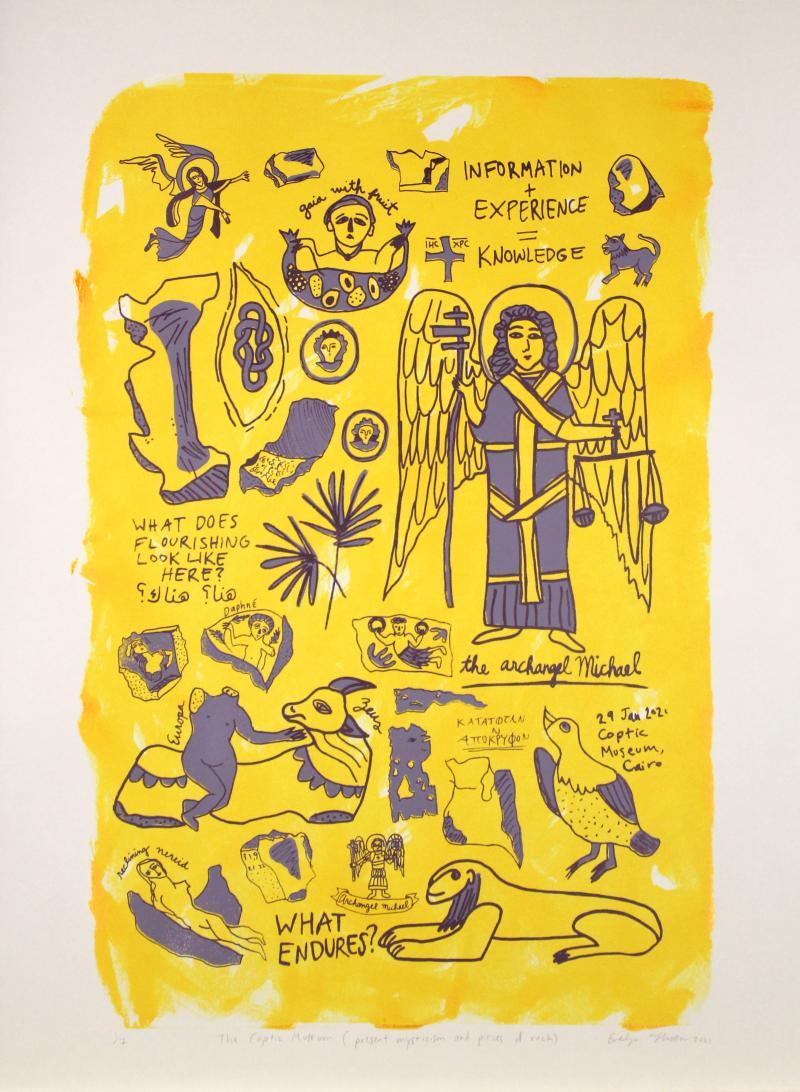 INFORMATION
+
EXPERIENCE
=
KNOWLEDGE
gaia with fruit
IHC XPC
WHAT DOES
FLOURISHING
LOOK LIKE
HERE?
هنا؟ هناك؟
Daphné
the archangel Michael
Europa
Zeus
ΚΑΤΑΤΦΤΑΝ
Ν
ΑΠΟΚΡΥΦΟΝ
29 Jan 2021
Coptic
Museum,
Cairo
reclining nereid
Archangel Michael
WHAT
ENDURES?
The Coptic Museum (present mysticism and pieces of rock)
2021